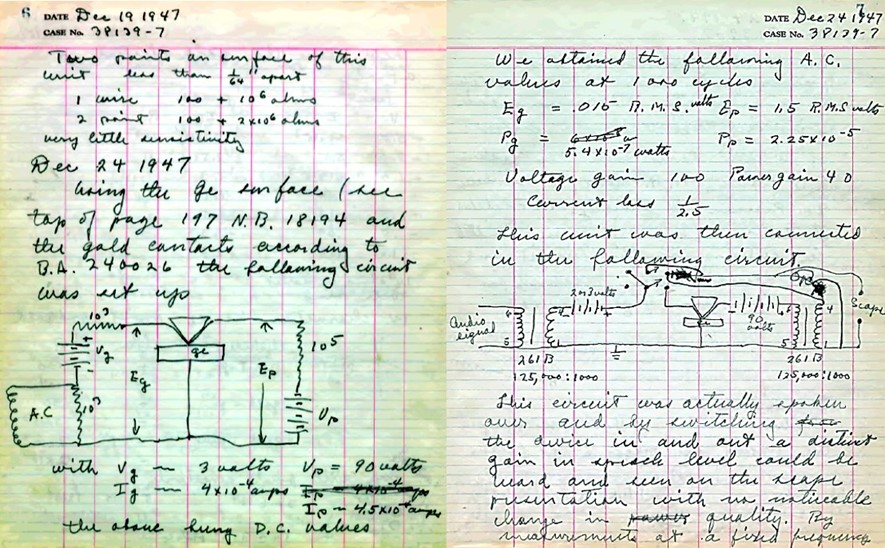 6
DATE Dec 19 1947
CASE No. 38139-7
Two points on surface of this
unit less than 1/64" apart
1 wire 100 + 10⁶ ohms
2 point 100 + 2×10⁶ ohms
very little sensitivity
Dec 24 1947
Using the Ge surface (see
top of page 197 N.B. 18194 and
the gold contacts according to
B.A. 240026 the following circuit
was set up
10³
Vg
Eg
ge
Ep
10⁵
A.C
10³
Vp
with Vg ~ 3 volts Vp = 90 volts
Ig ~ 4×10⁻⁶ amps
Ip = 4.5×10⁻⁴ amps
the above being D.C. values
7
DATE Dec 24 1947
CASE No. 38139-7
We attained the following A.C.
values at 1000 cycles
Eg = .015 R.M.S. volts Ep = 1.5 R.M.S volts
Pg = Pp = 2.25×10⁻⁵
5.4×10⁻⁷ watts
Voltage gain 100 Power gain 40
Current loss 1/2.5
This unit was then connected
in the following circuit.
2→3 volts
Audio signal
90 volts
Scope
ge
261B
125,000:1000
261B
125,000:1000
This circuit was actually spoken
over and by switching
the device in and out a distinct
gain in speech level could be
heard and seen on the scope
presentation with no noticeable
change in quality. By
measurements at a fixed frequency